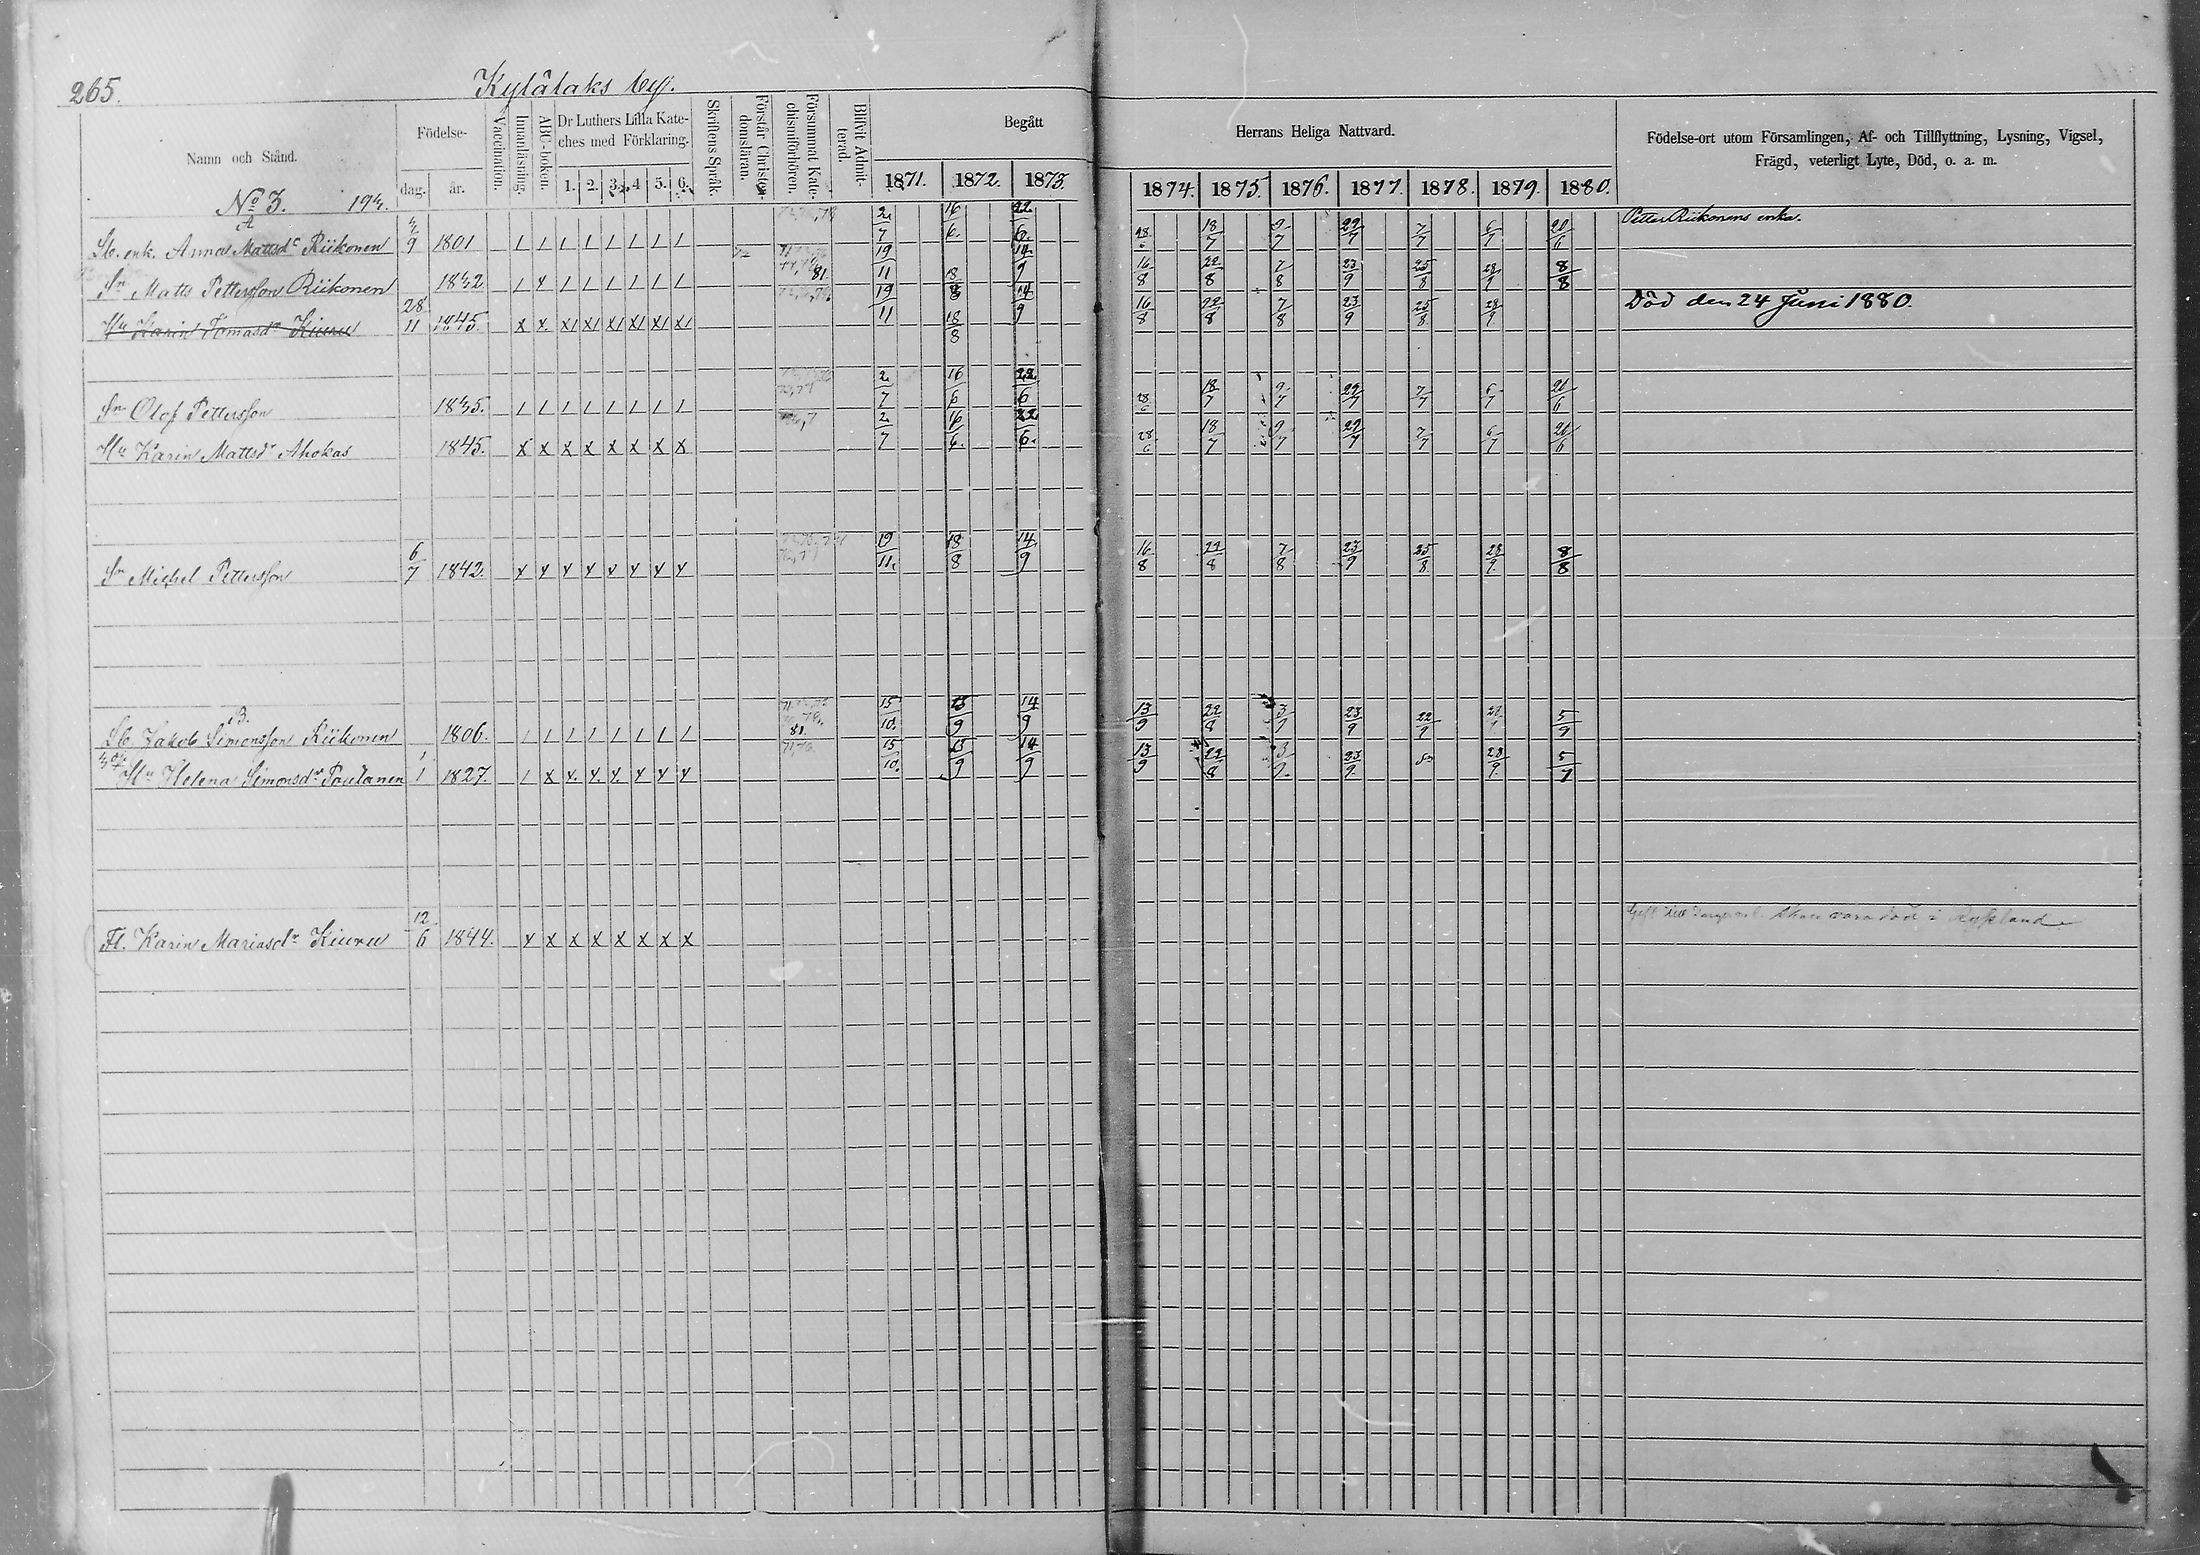 265.
Kylälaks by.
Namn och Stånd.
Födelse-
dag. år.
Vaccination.
Innanläsning.
ABC-boken.
Dr Luthers Lilla Kate-
ches med Förklaring.
1. 2. 3. 4 5. 6.
Skriftens Språk.
Förstår Christen-
domsläran.
Försummat Kate-
chismiförhören.
Blifvit Admit-
terad.
Begått
1871. 1872. 1873.
Herrans Heliga Nattvard.
1874. 1875. 1876. 1877. 1878. 1879. 1880.
Födelse-ort utom Församlingen, Af- och Tillflyttning, Lysning, Vigsel,
Frägd, veterligt Lyte, Död, o. a. m.
No 3.
A
Sb. enk. Anna Mattsdr Riikonen 1801 2/7 16/6. 22/6. 28/6 18/7 9/7 29/7 7/7 6/7 20/6 Petter Riikonens enka.
Sn Matts Pettersson Riikonen 81. 19/11 18/8 14/9 16/8 22/8 7/8 23/9 25/8 28/9 8/8
Hu Karin Tomasdr Kiuru 28/11 1845. 19/11 18/8 14/9 16/8 22/8 7/8 23/9 25/8 28/9 Död den 24 Juni 1880.
Sn Olof Pettersson 2/7 16/6 22/6 28/6 18/7 9/7 29/7 7/7 6/7 20/6
Hu Karin Mattsdr Ahokas 1845. 2/7 16/6. 22/6. 28/6 18/7 9/7 29/7 7/7 6/7 20/6
Sn Michel Pettersson 6/7 1842. 19/11. 18/8 14/9 16/8 22/8 7/8 23/9 25/8 28/9 8/8
B.
Sb Jakob Simonsson Riikonen 1806. 81. 15/10. 13/9 14/9 13/9 22/8 3/9 23/9 22/9 5/9
Hu Helena Simonsdr Pautanen 1/1 1827. 15/10. 13/9 14/9 13/9 22/8 3/9. 23/9. 28/9. 5/9
Fl. Karin Mariasdr Kiuru 12/6 1844. skall vara död i Ryssland